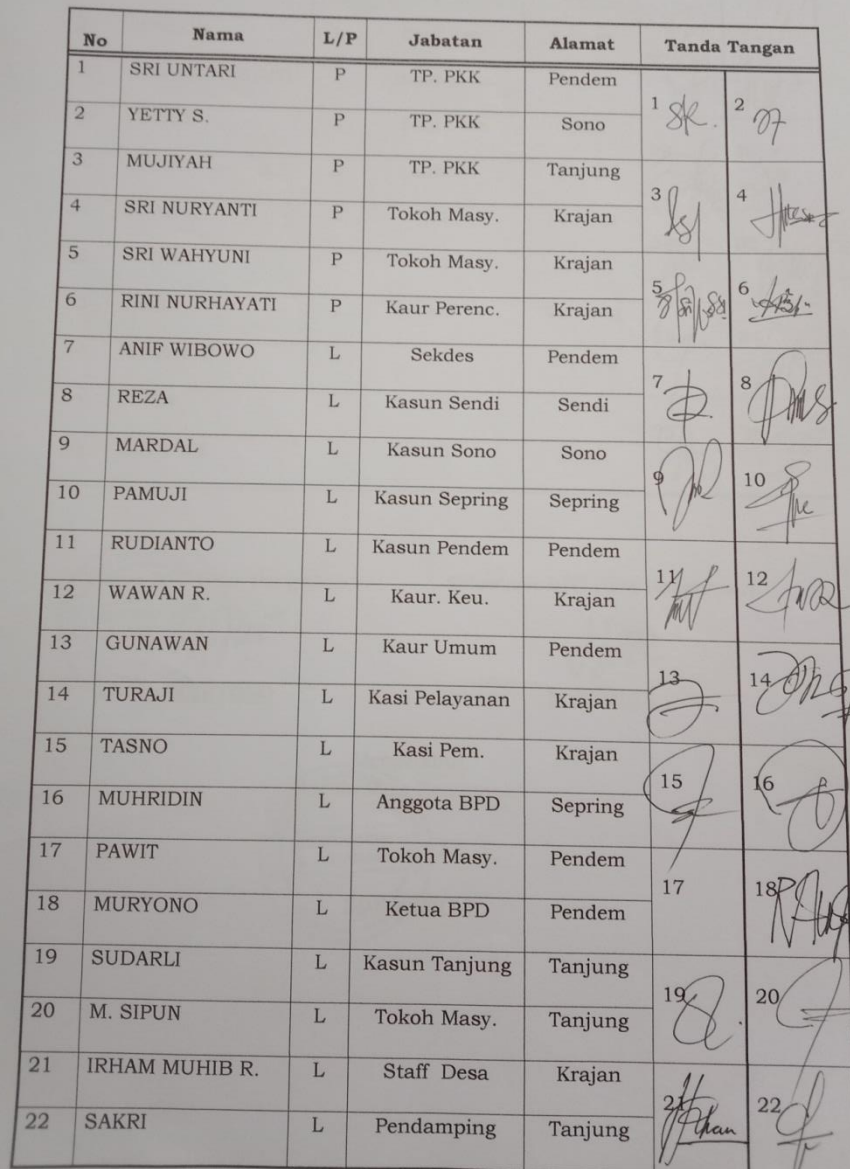 No Nama L/P Jabatan Alamat Tanda Tangan
1 SRI UNTARI P TP. PKK Pendem 1 2
2 YETTY S. P TP. PKK Sono
3 MUJIYAH P TP. PKK Tanjung 3 4
4 SRI NURYANTI P Tokoh Masy. Krajan
5 SRI WAHYUNI P Tokoh Masy. Krajan 5 6
6 RINI NURHAYATI P Kaur Perenc. Krajan
7 ANIF WIBOWO L Sekdes Pendem 7 8
8 REZA L Kasun Sendi Sendi
9 MARDAL L Kasun Sono Sono 9 10
10 PAMUJI L Kasun Sepring Sepring
11 RUDIANTO L Kasun Pendem Pendem 11 12
12 WAWAN R. L Kaur. Keu. Krajan
13 GUNAWAN L Kaur Umum Pendem 13 14
14 TURAJI L Kasi Pelayanan Krajan
15 TASNO L Kasi Pem. Krajan 15 16
16 MUHRIDIN L Anggota BPD Sepring
17 PAWIT L Tokoh Masy. Pendem 17 18
18 MURYONO L Ketua BPD Pendem
19 SUDARLI L Kasun Tanjung Tanjung 19 20
20 M. SIPUN L Tokoh Masy. Tanjung
21 IRHAM MUHIB R. L Staff Desa Krajan 21 22
22 SAKRI L Pendamping Tanjung